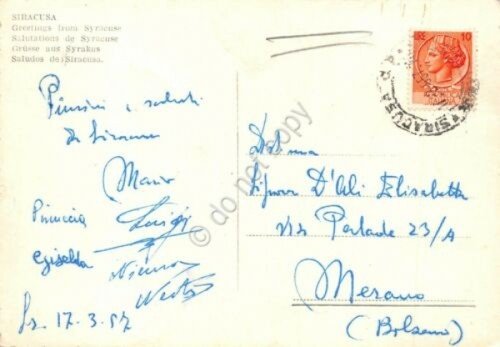 SIRACUSA
Greetings from Syracuse
Salutations de Syracuse
Grüsse aus Syrakus
Saludos de Siracusa.
10
SIRACUSA
saluti
da Siracusa
Mario
Pinuccia Luigi
Giselda
Sr. 17.3.57
Signora D'Alì Elisabetta
Via Portale 23/A
Merano
(Bolzano)
© do not copy